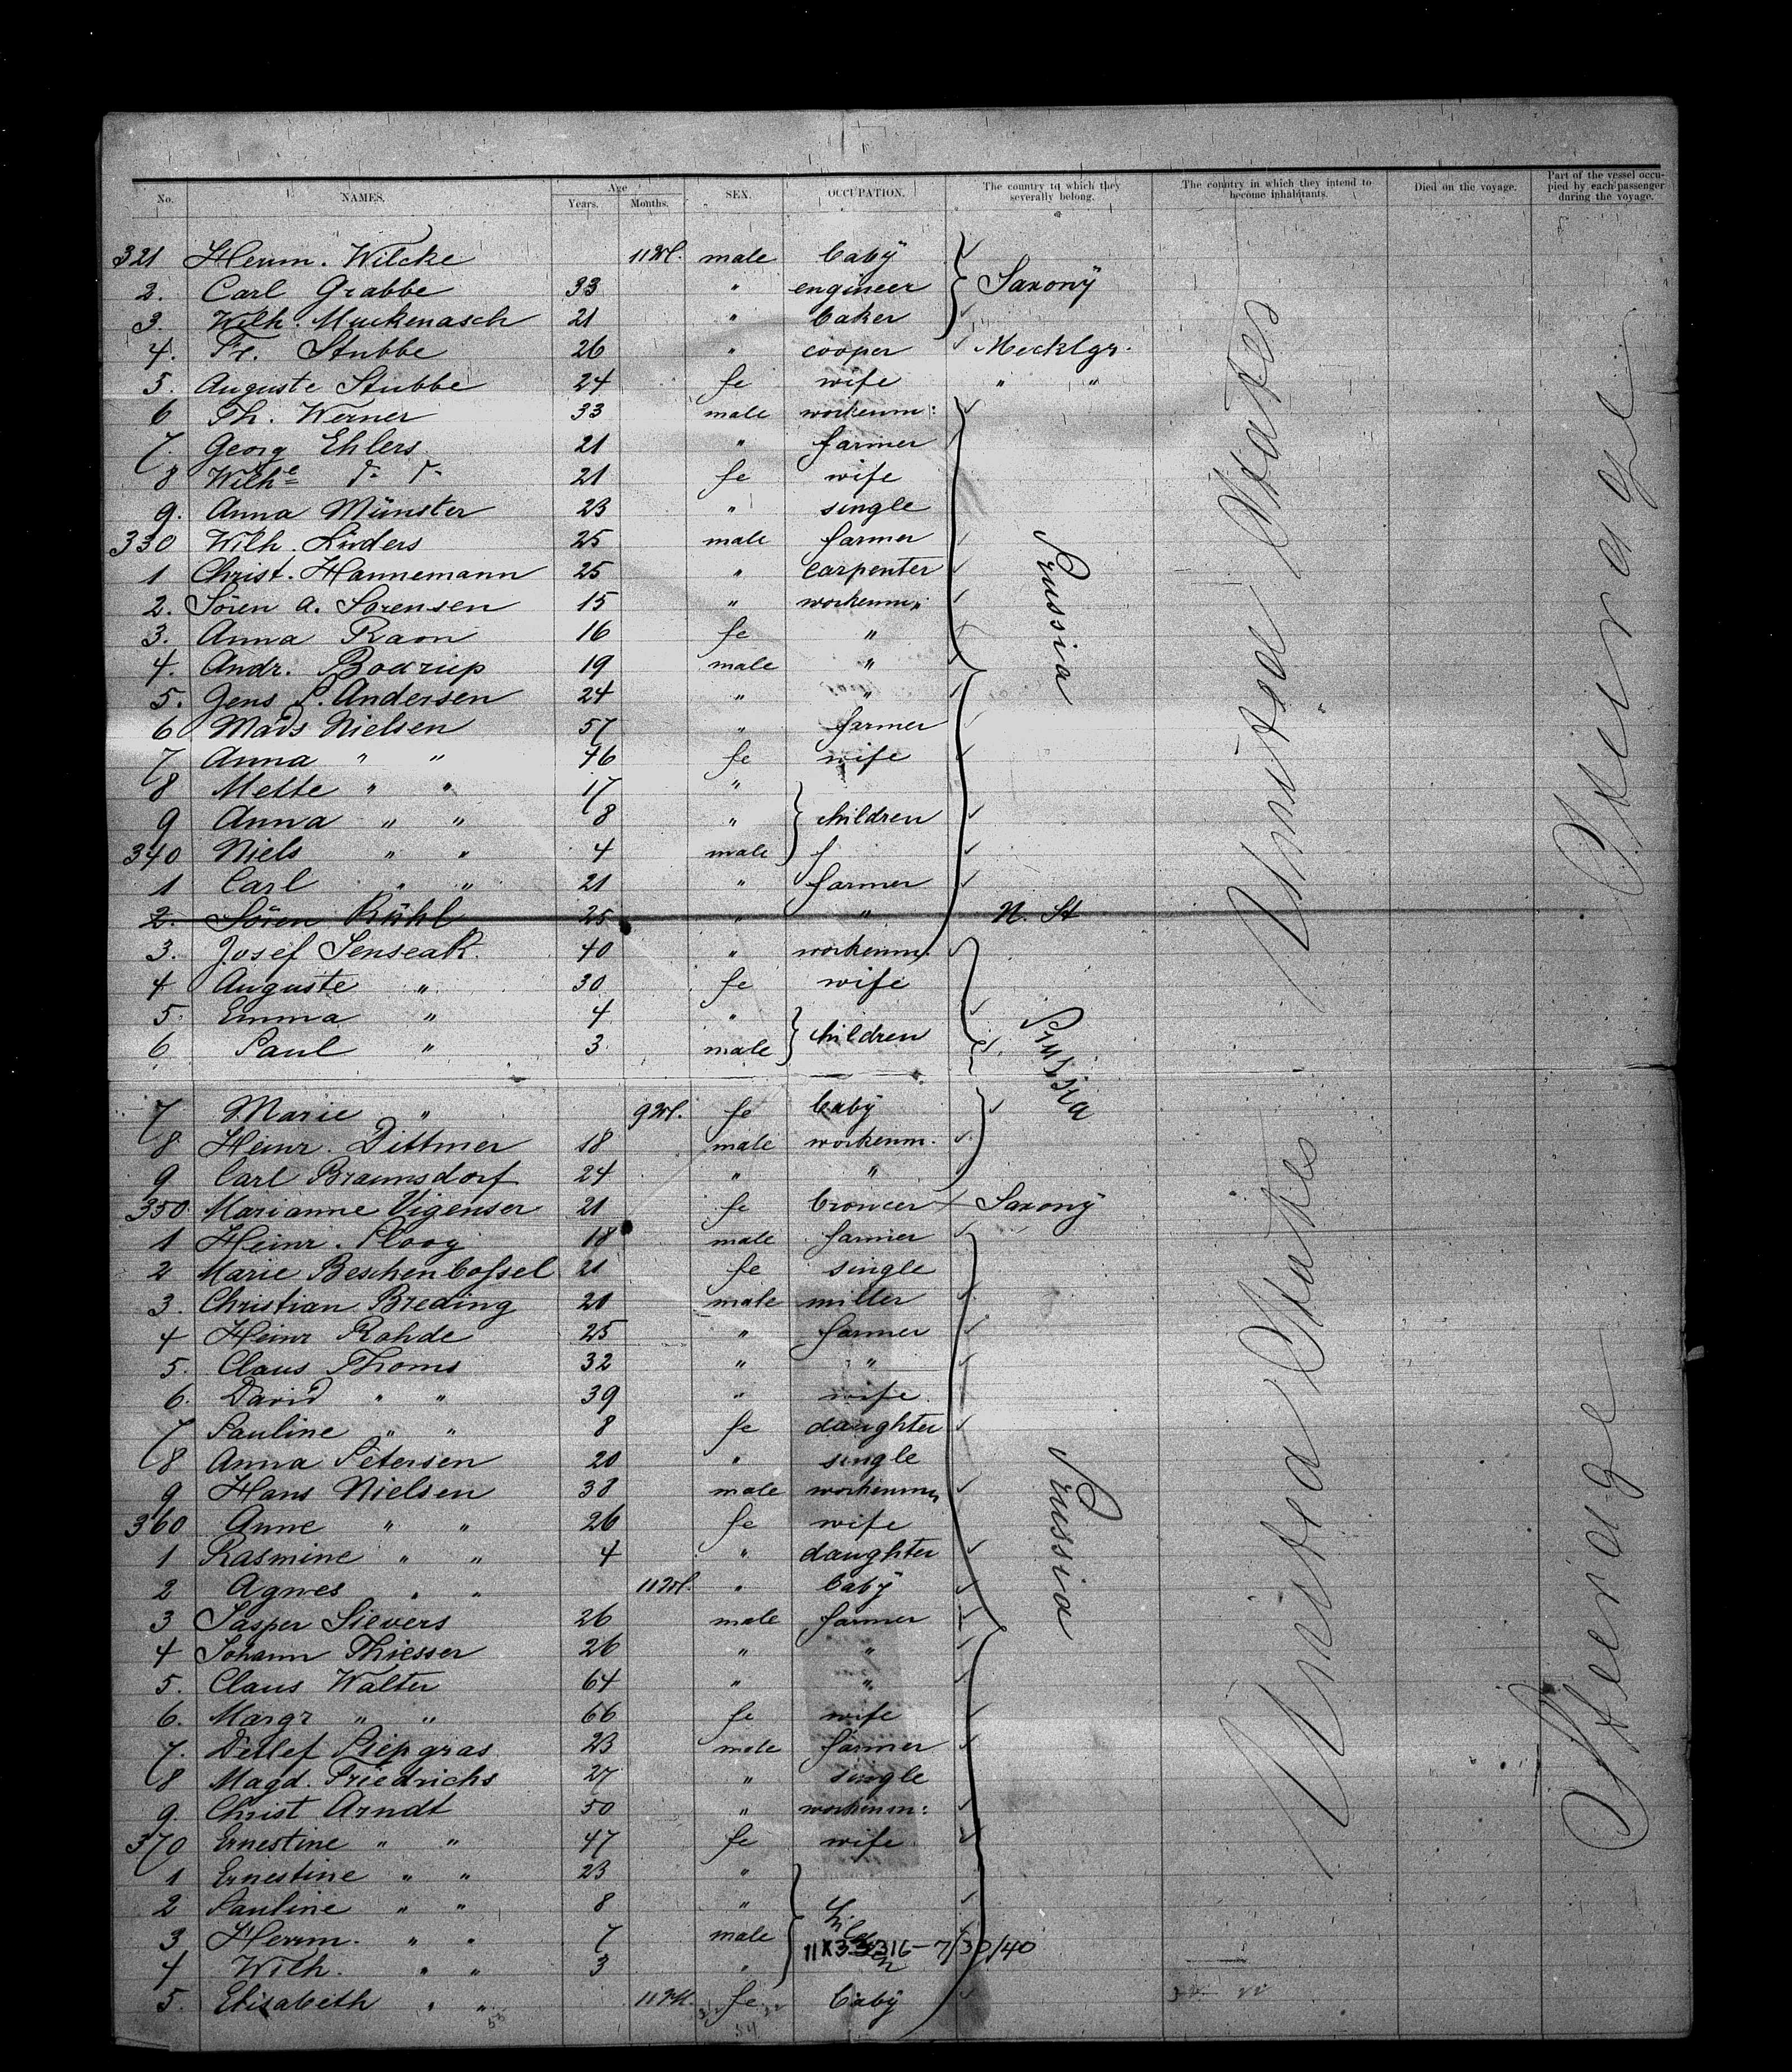 No. NAMES. Age Years. Months. SEX. OCCUPATION. The country to which they severally belong. The country in which they intend to become inhabitants. Died on the voyage. Part of the vessel occupied by each passenger during the voyage.
321 Herm. Wilcke 11 M. male baby
2. Carl Grabbe 33 " engineer Saxony
3. Wilh. Muckenasch 21 " baker
4. Fr. Stubbe 26 " cooper Mecklgr.
5. Auguste Stubbe 24 fe wife " "
6 Th. Werner 33 male workenm:
7. Georg Ehlers 21 " farmer
8 Wilhe 21 fe wife
9. Anna Münster 23 " single
330 Wilh. Lüders 25 male farmer
1 Christ. Hannemann 25 " carpenter
2. Sören A. Sorensen 15 " workenm.
3. Anna Raon 16 fe "
4. Andr. Bourup 19 male "
5. Jens P. Andersen 24 " "
6 Mads Nielsen 57 " farmer
7 Anna " " 46 fe wife
8 Mette " " 17 "
9 Anna " " 8 " children
340 Niels " " 4 male
1 Carl " " 21 " farmer
2. Sören Bühl 25 " " N. St
3. Josef Senseak. 40 " workenm.
4 Auguste " 30 fe wife
5. Emma " 4 "
6 Paul " 3 male children
7 Marie " 9 M. fe baby
8 Heinr. Dittmer 18 male workenm.
9 Carl Braunsdorf 24 " "
350. Marianne Vigenser 21 fe Saxony
1 Heinr. Ploog 18 male farmer
2 Marie Beschenbossel 21 fe single
3. Christian Breding 20 male miller
4 Heinr Rohde 25 " farmer
5. Claus Thoms 32 " "
6. David " " 39 " wife
7 Pauline " " 8 fe daughter
8 Anna Petersen 20 " single
9 Hans Nielsen 38 male workenm.
360 Anne " " 26 fe wife
1 Rasmine " " 4 " daughter
2 Agnes " " 11 M. " baby
3 Jasper Sievers 26 male farmer
4 Johann Thiesser 26 " "
5. Claus Walter 64 " "
6. Margr " " 66 fe wife
7. Detlef Piepgras 23 male farmer
8 Magd. Friedrichs 27 " single
9. Christ Arndt 50 " workenm:
370 Ernestine " " 47 fe wife
1 Ernestine " " 23 "
2 Pauline " " 8 "
3 Herm. " " 7 male
4 Wilh. " " 3 "
5. Elisabeth " " 11 M. fe baby
Prussia
Prussia
Prussia
United States
United States
Steerage
Steerage